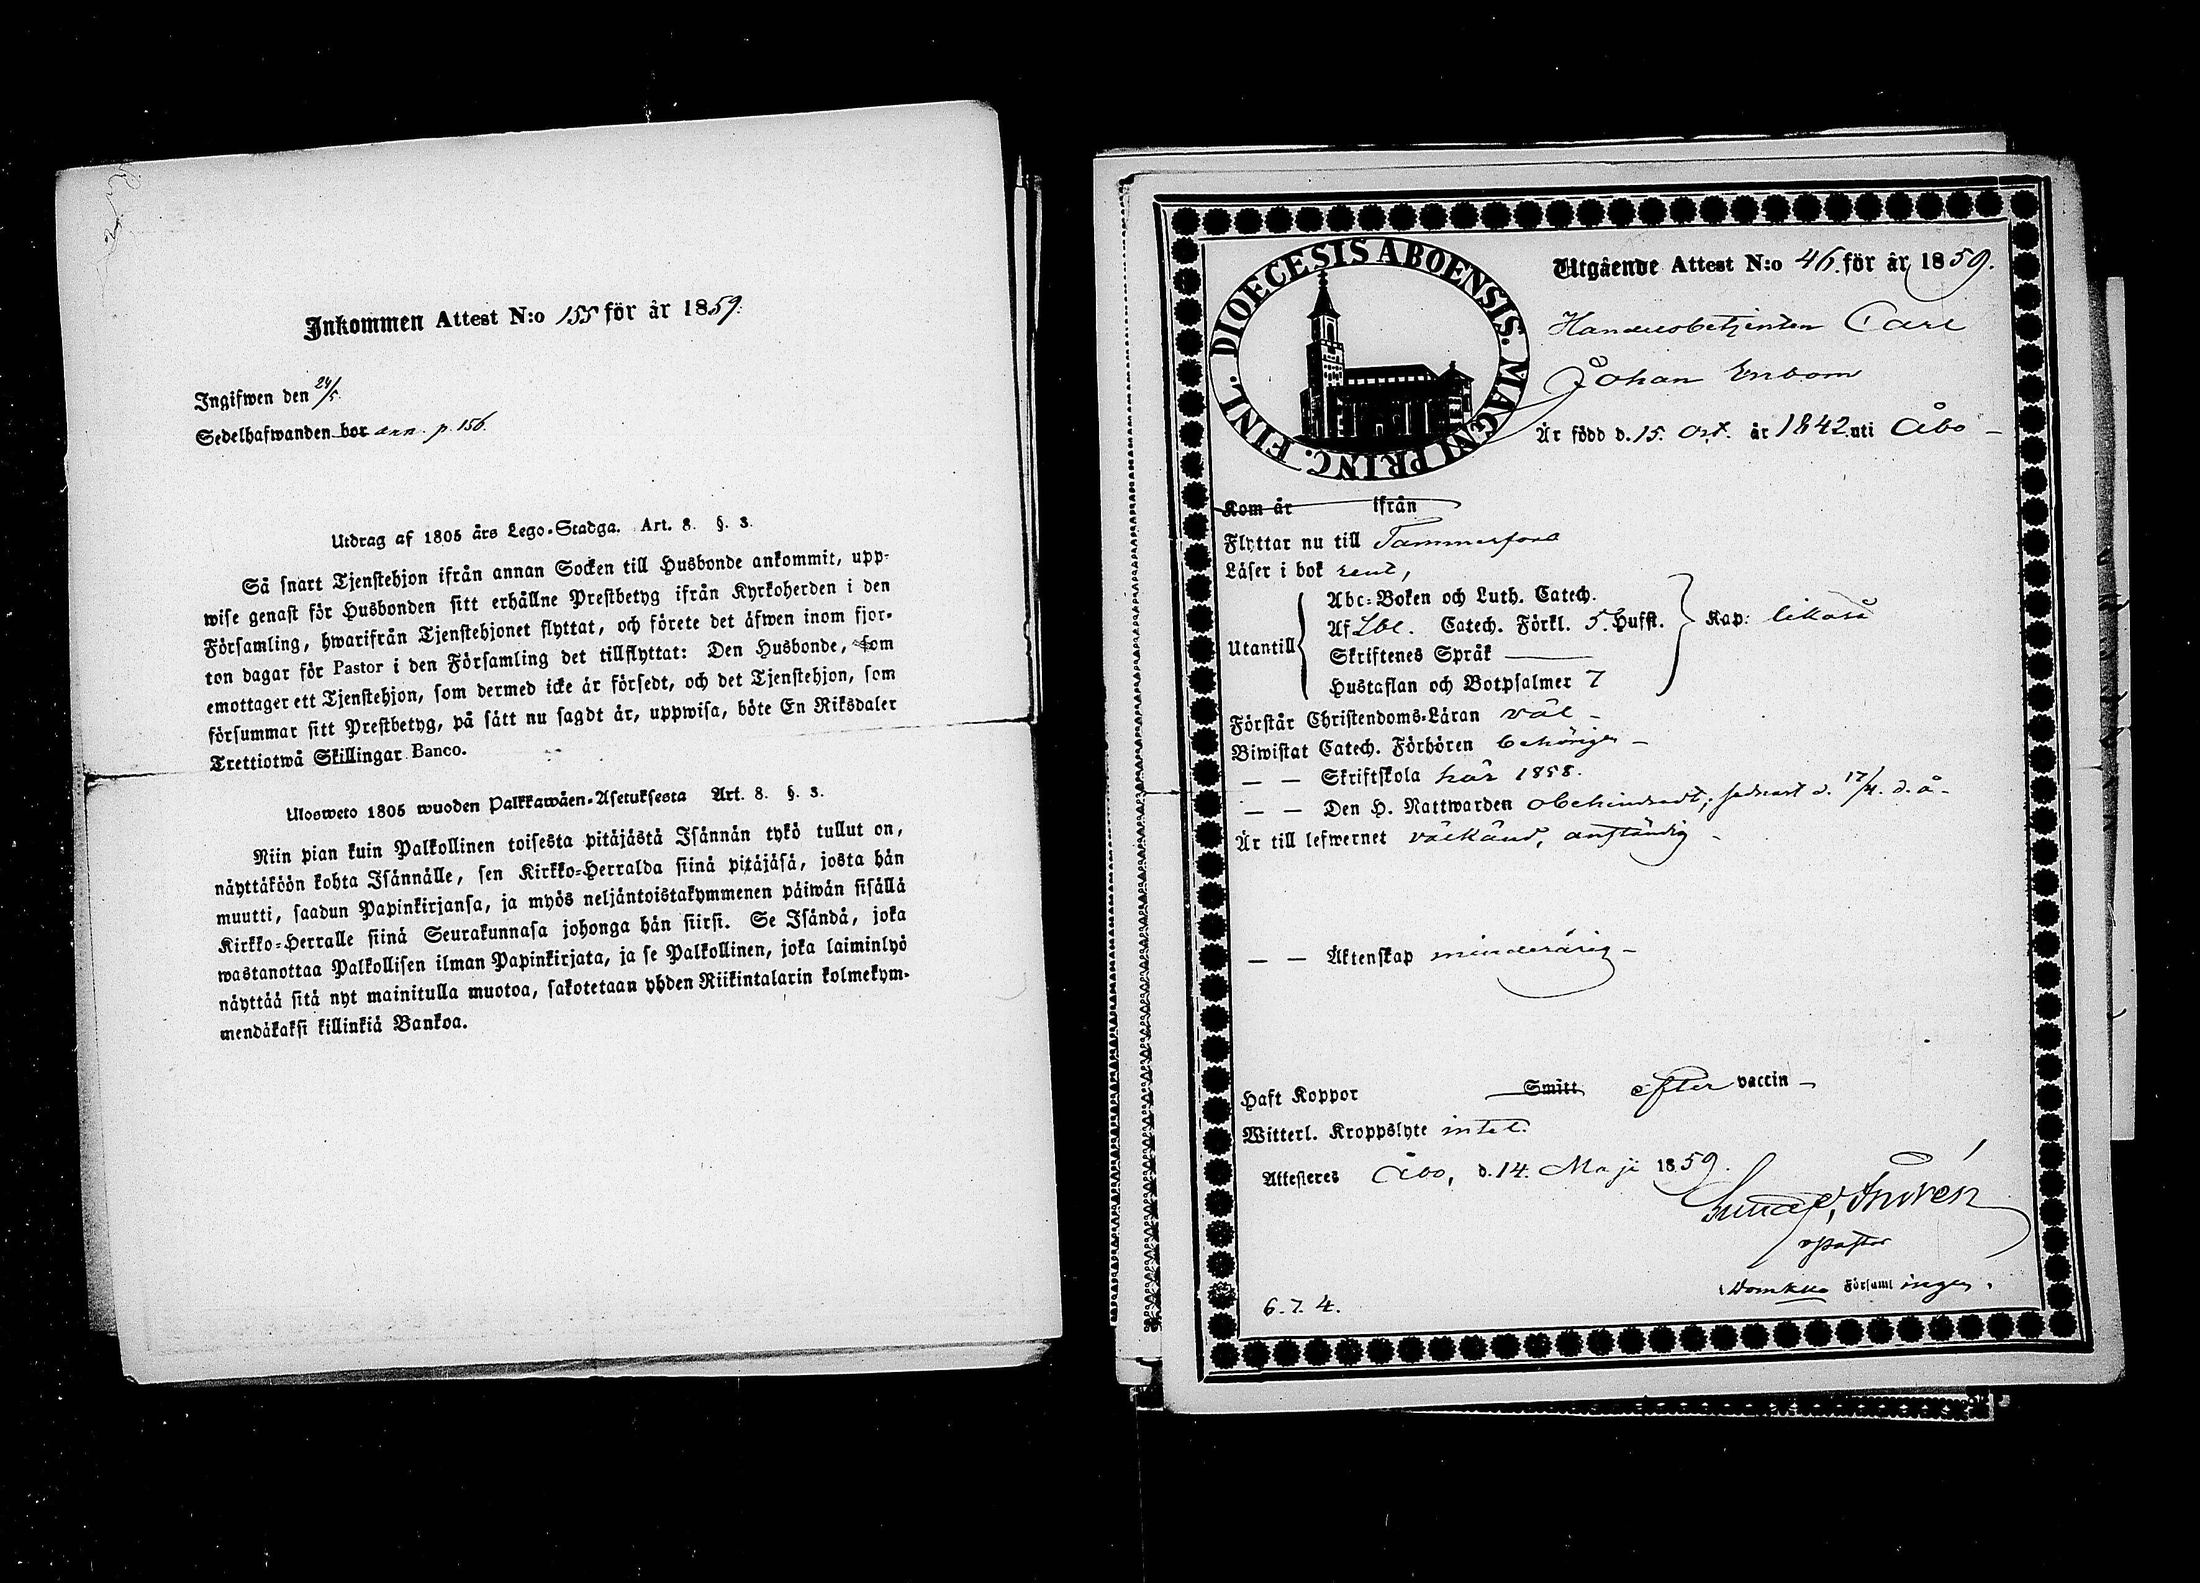 Inkommen Attest N:o 155 för år 1859.
Ingifwen den 24/5.
Sedelhafwanden bor ann. p. 156.
Utdrag af 1805 års Lego-Stadga. Art. 8. §. 3.
Så snart Tjenstehjon ifrån annan Socken till Husbonde ankommit, upp-
wise genast för Husbonden sitt erhållne Prestbetyg ifrån Kyrkoherden i den
Församling, hwarifrån Tjenstehjonet flyttat, och förete det äfwen inom fjor-
ton dagar för Pastor i den Församling det tillflyttat: Den Husbonde, som
emottager ett Tjenstehjon, som dermed icke är försedt, och det Tjenstehjon, som
försummar sitt Prestbetyg, på sätt nu sagdt är, uppwisa, böte En Riksdaler
Trettiotwå Skillingar Banco.
Ulosweto 1805 wuoden Palkkawäen-Asetuksesta Art. 8. §. 3.
Niin pian kuin Palkollinen toisesta pitäjästä Isännän tykö tullut on,
näyttäköön kohta Isännälle, sen Kirkko-Herralda siinä pitäjäsä, josta hän
muutti, saadun Papinkirjansa, ja myös neljäntoistakymmenen päiwän sisällä
Kirkko-Herralle siinä Seurakunnasa johonga hän siirsi. Se Isändä, joka
wastanottaa Palkollisen ilman Papinkirjata, ja se Palkollinen, joka laiminlyö
näyttää sitä nyt mainitulla muotoa, sakotetaan yhden Riikintalarin kolmekym-
mendäkaksi killinkiä Bankoa.
DIOECESIS ABOENSIS. MAGNI PRINC. FINL.
Utgående Attest N:o 46. för år 1859.
Handelsbetjenten Carl
Johan Enbom
Är född d. 15. Oct. år 1842 uti Åbo –
Kom år ifrån
Flyttar nu till Tammerfors
Läser i bok rent,
Utantill
Abc-Boken och Luth. Catech.
Af Lbl. Catech. Förkl. 5. Hufst.
Skriftenes Språk
Hustaflan och Botpsalmer 7
Kap: likaså
Förstår Christendoms-Läran väl –
Biwistat Catech. Förhören behörigen –
— — Skriftskola här 1858.
— — Den H. Nattwarden obehindradt; sednast d. 17/4. d. å –
Är till lefwernet välkänd, anständig –
— — Äktenskap minderårig –
Haft Koppor Smitt efter vaccin –
Witterl. Kroppslyte intet.
Attesteres Åbo, d. 14. Maji 1859.
v. pastor
i Domk. Församlingen.
6. 7. 4.